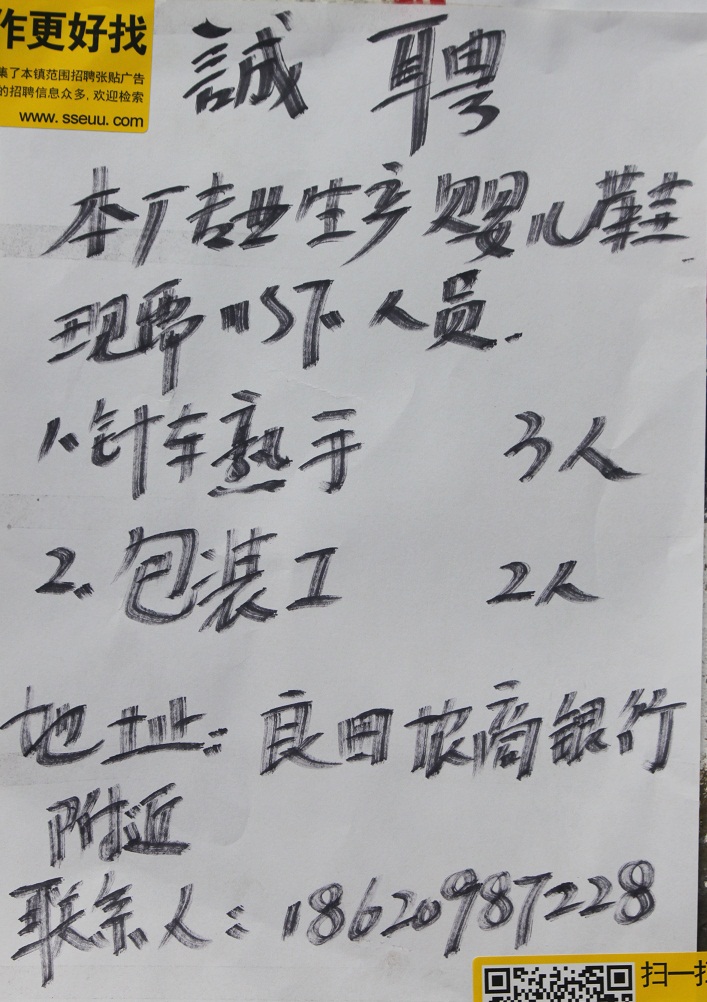 作更好找
集了本镇范围招聘张贴广告
的招聘信息众多,欢迎检索
www.sseuu.com
誠聘
本厂专业生产婴儿鞋
现需以下人员.
1.针车熟手 3人
2.包装工 2人
地址:良田农商银行
附近
联系人:18620987228
扫一扫